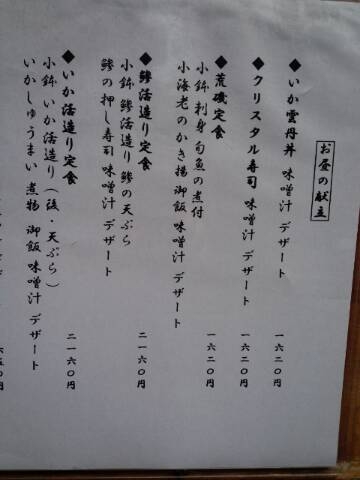 お昼の献立
◆いか雲丹丼 味噌汁 デザート 一六二〇円
◆クリスタル寿司 味噌汁 デザート 一六二〇円
◆荒磯定食
小鉢 刺身 旬魚の煮付
小海老のかき揚 御飯 味噌汁 デザート 一六二〇円
◆鯵活造り定食
小鉢 鯵活造り 鯵の天ぷら
鯵の押し寿司 味噌汁 デザート 二一六〇円
◆いか活造り定食
小鉢 いか活造り(後・天ぷら)
いかしゅうまい 煮物 御飯 味噌汁 デザート 二一六〇円